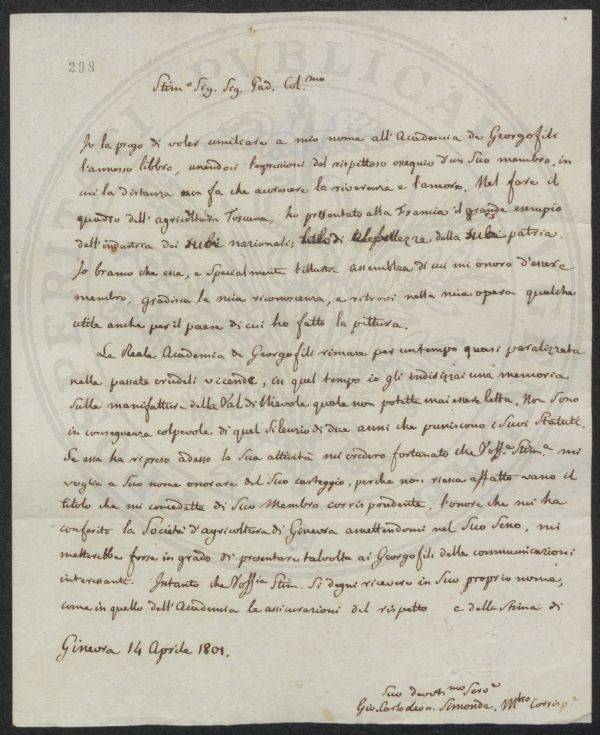 298
Stim.o Sig. Sig. Pad. Col.mo
Io la prego di voler umiliare a mio nome all'Academia de Georgofili
l'annesso libbro, unendoci l'espressioni del rispettoso ossequio d'un suo membro, in
cui la distanza non fa che accrescere la riverenza e l'amore. Nel fare il
quadro dell'agricoltura Toscana, ho presentato alla Francia il grande esempio
dell'industria dei suoi nazionali; della patria.
Io bramo che essa, e specialmente l'illustre assemblea di cui mi onoro d'essere
membro, gradisca la mia riconoscenza, e ritrovi nella mia opera qualche
utile anche per il paese di cui ho fatto la pittura.
La Reale Academia de Georgofili rimase per un tempo quasi paralizzata
nelle passate crudeli vicende, in quel tempo io gli indirizzai una memoria
sulle manifatture della Val di Nievole quale non potette mai essere letta. Non sono
in conseguenza colpevole di quel silenzio di due anni che puniscono i suoi Statuti.
Se essa ha ripreso adesso la sua attività mi crederò fortunato che Voss.a Stim.a mi
voglia a suo nome onorare del suo carteggio, perche non riesca affatto vano il
titolo che mi concedette di suo Membro corrispondente. l'onore che mi ha
conferito la Società d'agricoltura di Ginevra amettendomi nel suo seno, mi
metterebbe forse in grado di presentare talvolta ai Georgofili delle communicazioni
interessanti. Intanto che Voss.ia Stim. si degni ricevere in suo proprio nome,
come in quello dell'Academia le assicurazioni del rispetto e della stima di
Ginevra 14 Aprile 1801.
Suo devot.mo Serv.e
Gio. Carlo Leon. Simonde, M.bro Corrisp.e